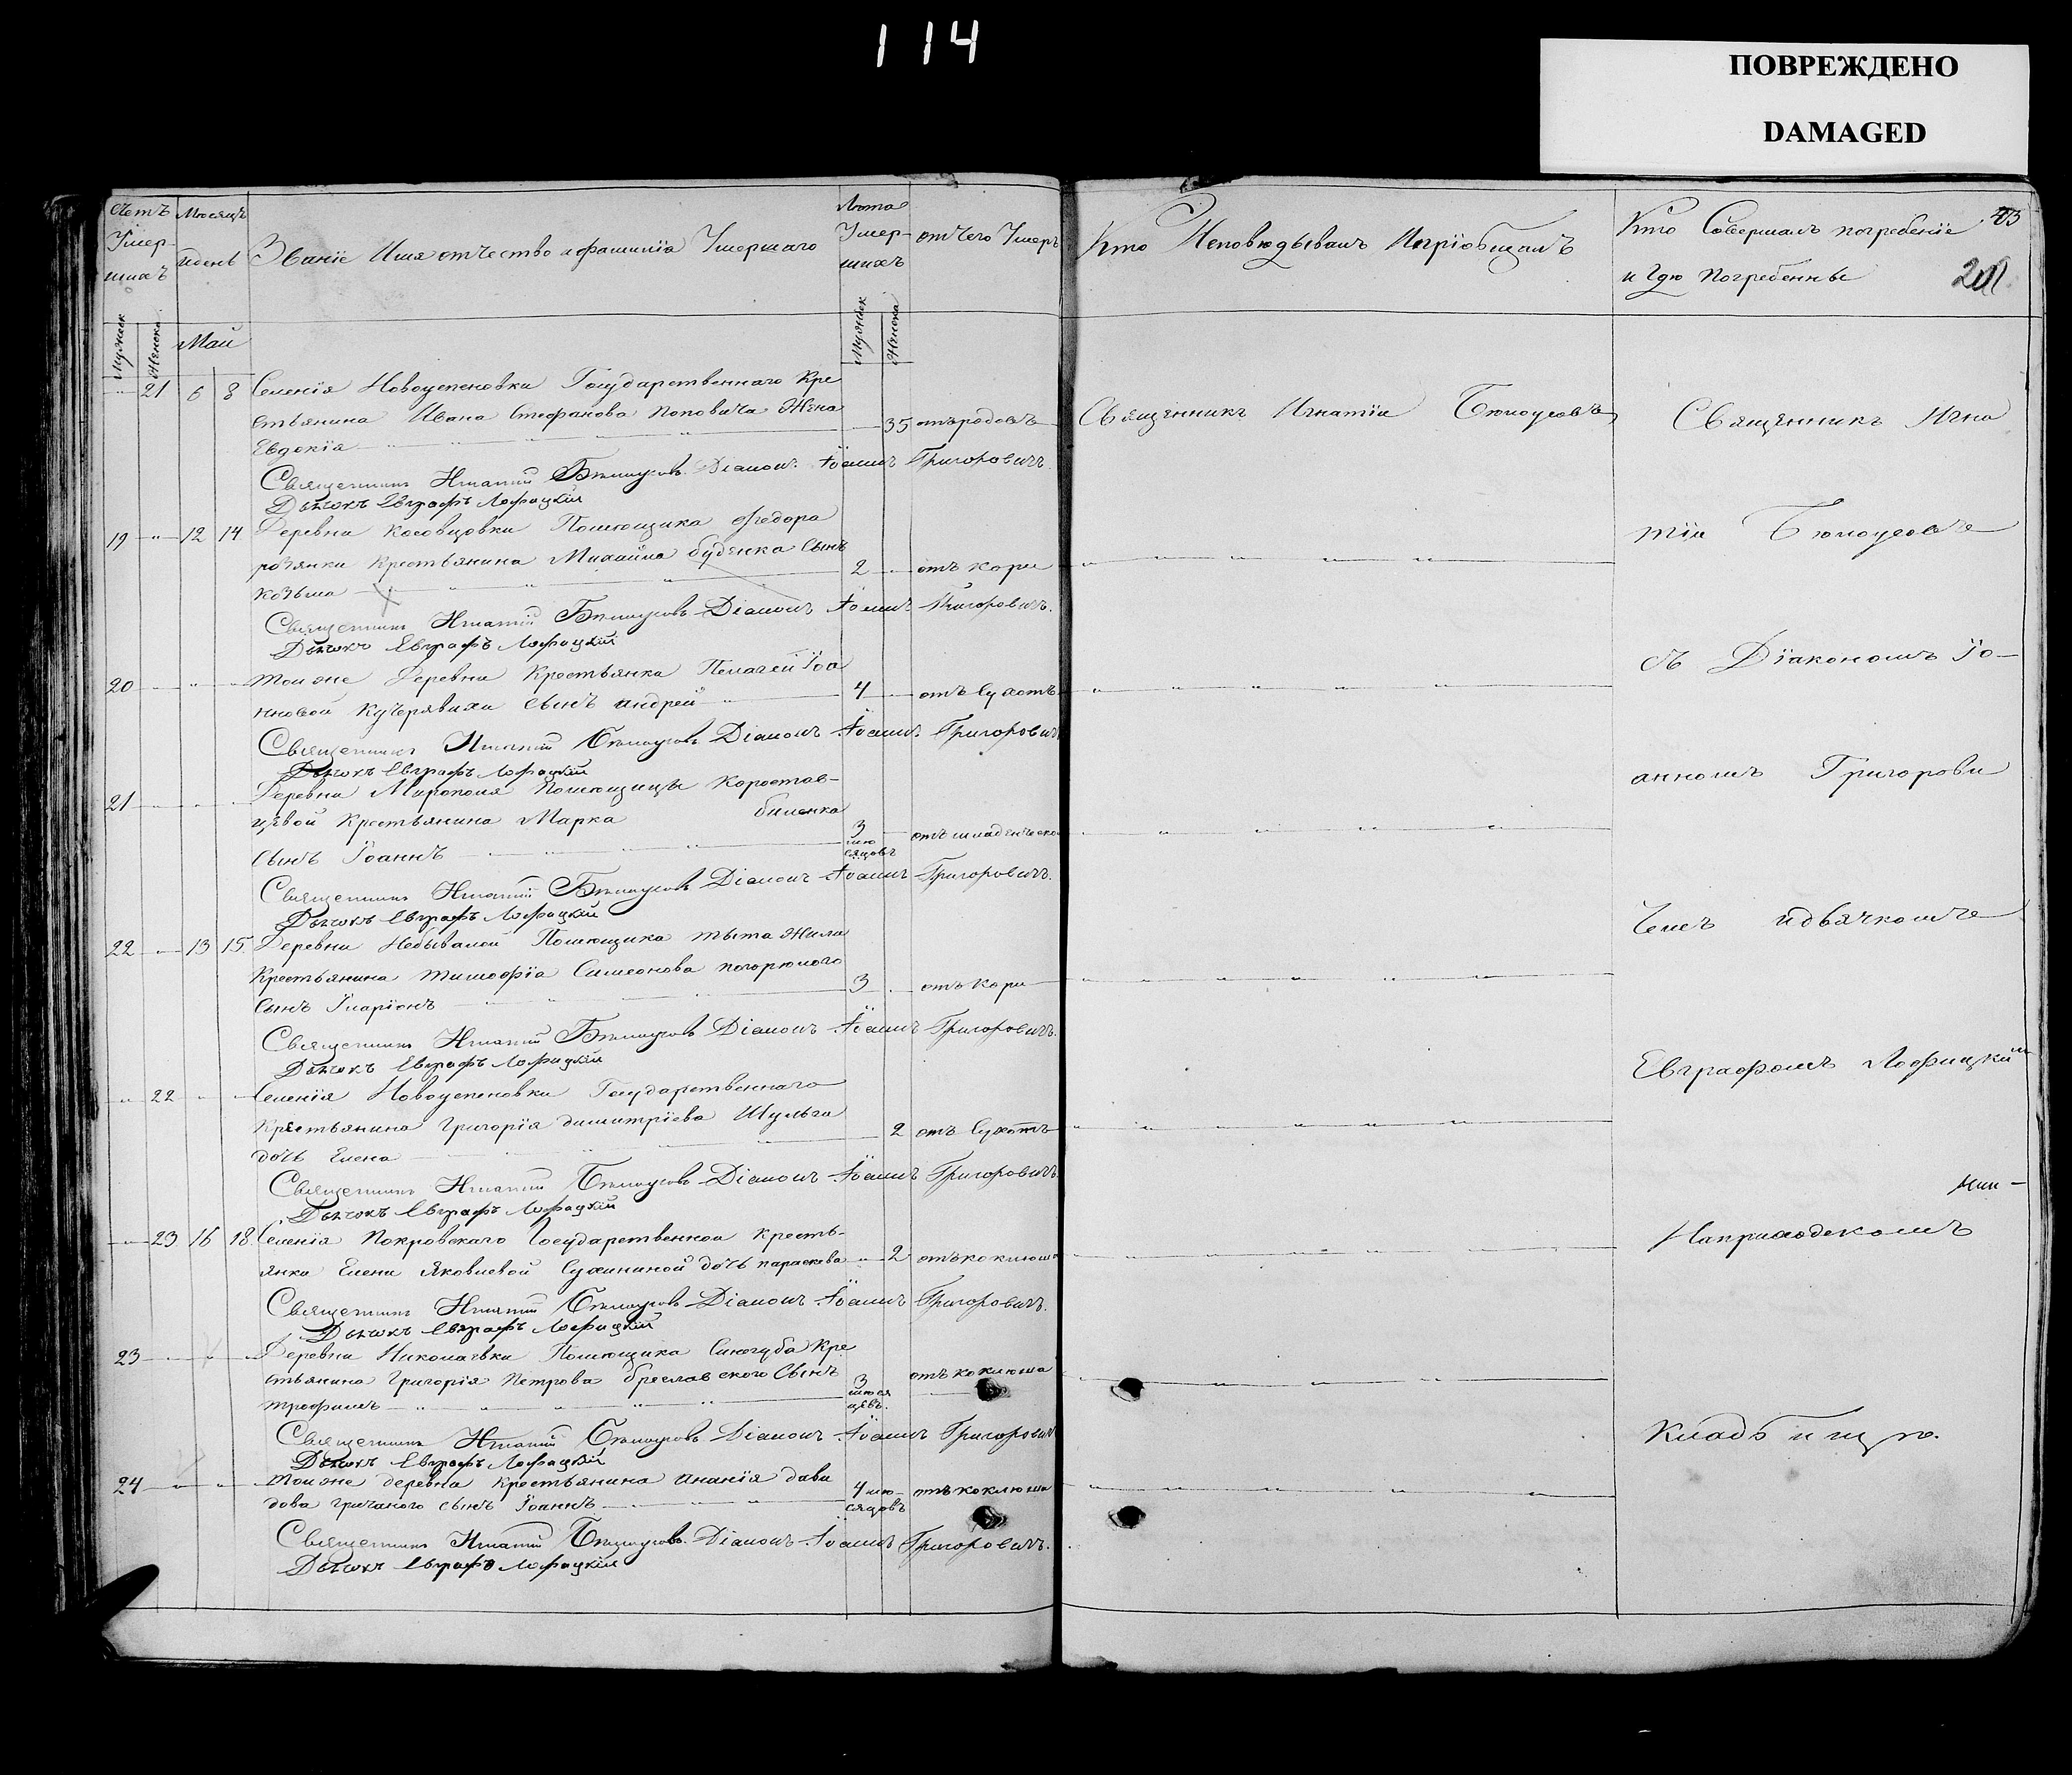 114
ПОВРЕЖДЕНО
DAMAGED
Счетъ Умершихъ
Мужеск
Женска
Мѣсяцъ и день
Званіе Имя отчество и фамилія Умершаго
Лета Умершихъ
Мужеск
Женска
отчего Умеръ
Кто Исповѣдывалъ И пріобщалъ
Кто Совершалъ погребеніе
и Гдѣ Погребенны
Май
21 6 8 Селенія Новоуспеновки Государственнаго Кре
стьянина Ивана Стефанова Поповича Жена 35 отъ родовъ
Евдокія
Священникъ Игнатій Бѣлоусовъ Діаконъ Іоаннъ Григоровичъ.
Дьячокъ Евграфъ Лофицкій
19 12 14 Деревни Косовцовки Помѣщика Федора
Крестьянина Михайла буденка Сынъ 2 отъ Кори
Козьма
Священникъ Игнатій Бѣлоусовъ Діаконъ Іоаннъ Григоровичъ.
Дьячокъ Евграфъ Лофицкій
20 Той же Деревни Крестьянка Пелагеи Іоа
нновой Кучерявихи Сынъ Андрей 4 отъ Сухотъ
Священникъ Игнатій Бѣлоусовъ Діаконъ Іоаннъ Григоровичъ
Дьячокъ Евграфъ Лофицкій
21 Деревни Мирополя Помѣщицы Коростов-
цевой Крестьянина Марка биленка
Сынъ Іоаннъ 3 мѣсяцовъ отъ младенческо
Священникъ Игнатій Бѣлоусовъ Діаконъ Іоаннъ Григоровичъ.
Дьячокъ Евграфъ Лофицкій
22 13 15 Деревни Небывалой Помѣщика
Крестьянина Тимофія Симеонова погорѣлого
Сынъ Иларіонъ 3 отъ Кори
Священникъ Игнатій Бѣлоусовъ Діаконъ Іоаннъ Григоровичъ.
Дьячокъ Евграфъ Лофицкій
22 Селенія Новоуспеновки Государственнаго
Крестьянина Григорія Димитріева Шульги
дочь Елена 2 отъ Сухотъ
Священникъ Игнатій Бѣлоусовъ Діаконъ Іоаннъ Григоровичъ.
Дьячокъ Евграфъ Лофицкій
23 16 18 Селенія Покровскаго Государственной Кресть-
янки Елени Яковлевой Сухининой дочь Параскева 2 отъ коклюша
Священникъ Игнатій Бѣлоусовъ Діаконъ Іоаннъ Григоровичъ.
Дьячокъ Евграфъ Лофицкій
23 Деревни Николаевки Помѣщика Синегуба Кре
стьянина Григорія Петрова бреславского Сынъ 3 мѣсяцевъ. отъ коклюша
Трофимъ
Священникъ Игнатій Бѣлоусовъ Діаконъ Іоаннъ Григоровичъ
Дьячокъ Евграфъ Лофицкій
24 Той же деревни Крестьянина Ананія Дави
дова гричаного сынъ Іоаннъ 4 мѣсяцовъ отъ коклюша
Священникъ Игнатій Бѣлоусовъ Діаконъ Іоаннъ Григоровичъ.
Дьячокъ Евграфъ Лофицкій
Священникъ Игнатій Бѣлоусовъ
Священникъ Игна
тій Бѣлоусовъ
съ Діакономъ Іо-
анномъ Григорови
чемъ и дьячкомъ
Евграфомъ Лофицкимъ
На приходскомъ
Кладбищѣ.